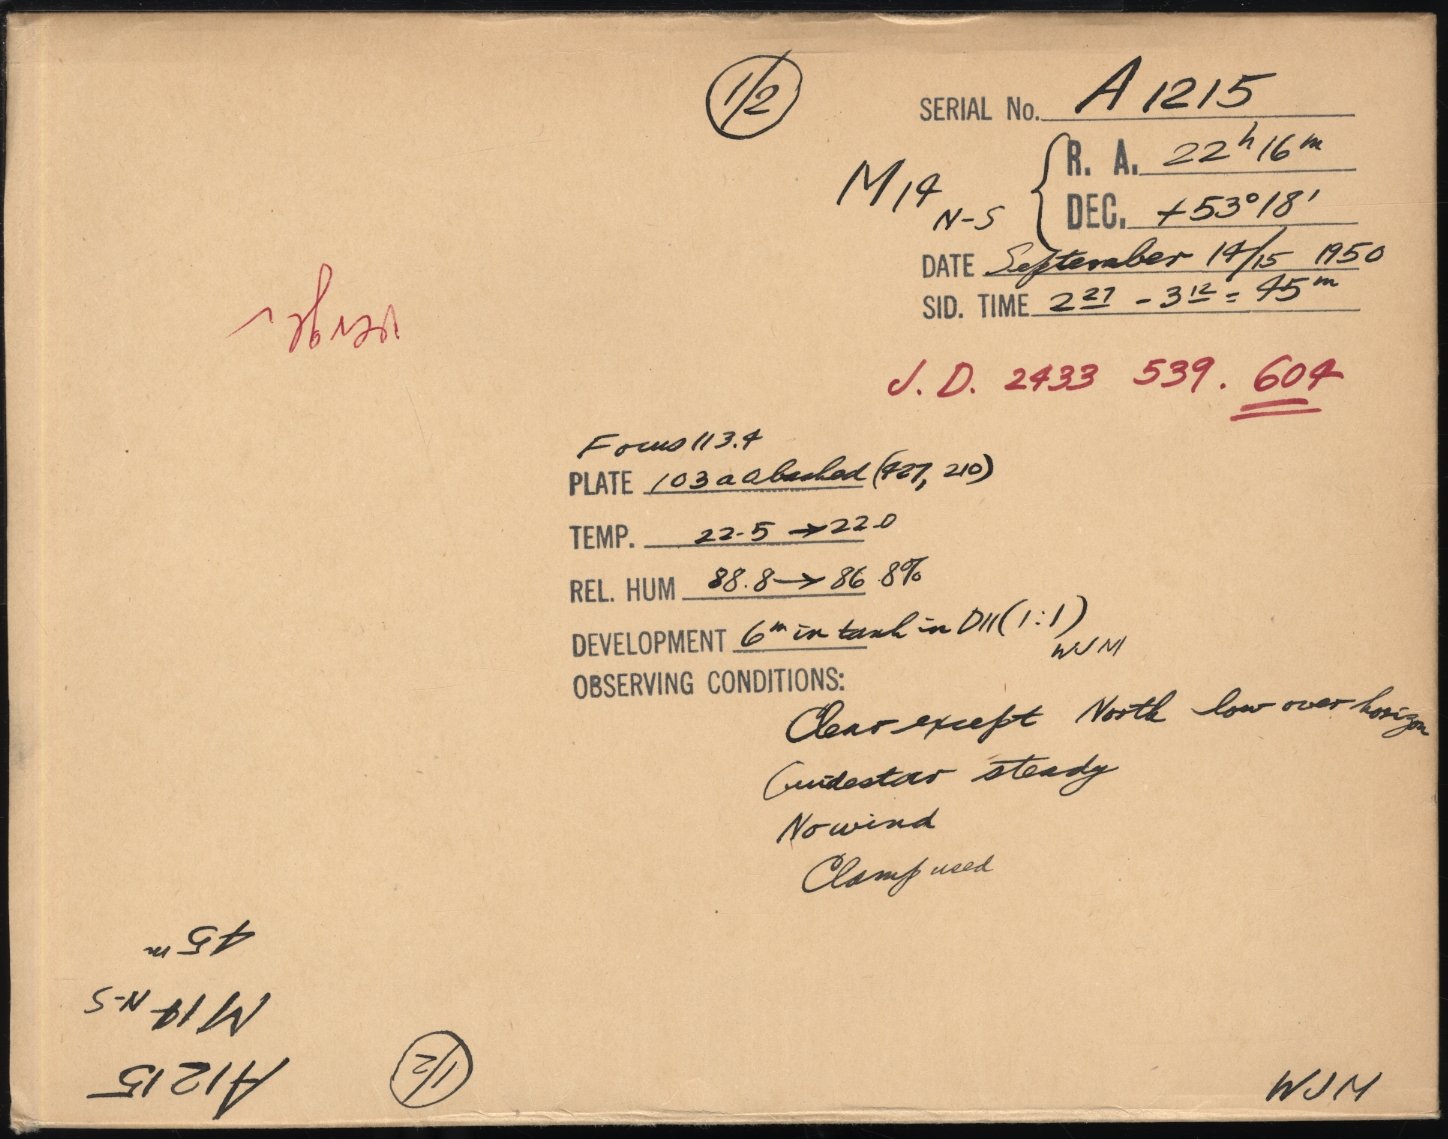 1/2
SERIAL No. A 1215
M14 N-S
R. A. 22h 16m
DEC. +53°18'
DATE September 14/15 1950
SID. TIME 2 27 - 3 12 = 45m
J. D. 2433 539. 604
Focus 113.4
PLATE 103aO backed (427, 210)
TEMP. 22.5 → 22.0
REL. HUM 88.8 → 86.8%
DEVELOPMENT 6m in tank in D11 (1:1)
WJM
OBSERVING CONDITIONS:
Clear except North low over horizon
Guidestar steady
No wind
Clamp used
45m
M14 N-S
A1215
1/2
WJM